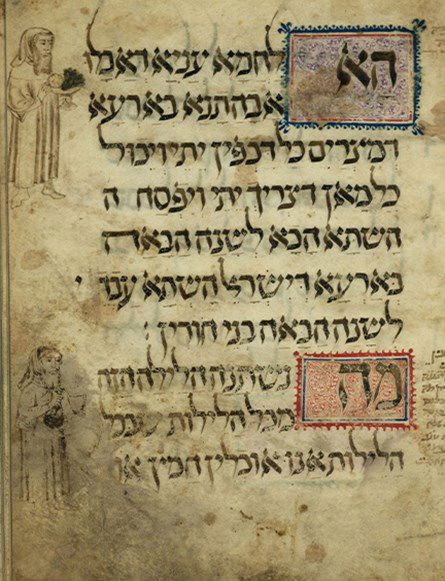 הא לחמא עניא דאכלו
אבהתנא בארעא
דמצרים כל דכפין יתי ויכול
כל מאן דצריך יתי ויפסח ה
השתא הכא לשנה הבאה
בארעא דישראל השתא עבד
לשנה הבאה בני חורין :
מה נשתנה הלילה הזה
מכל הלילות שבכל
הלילות אנו אוכלין חמץ או